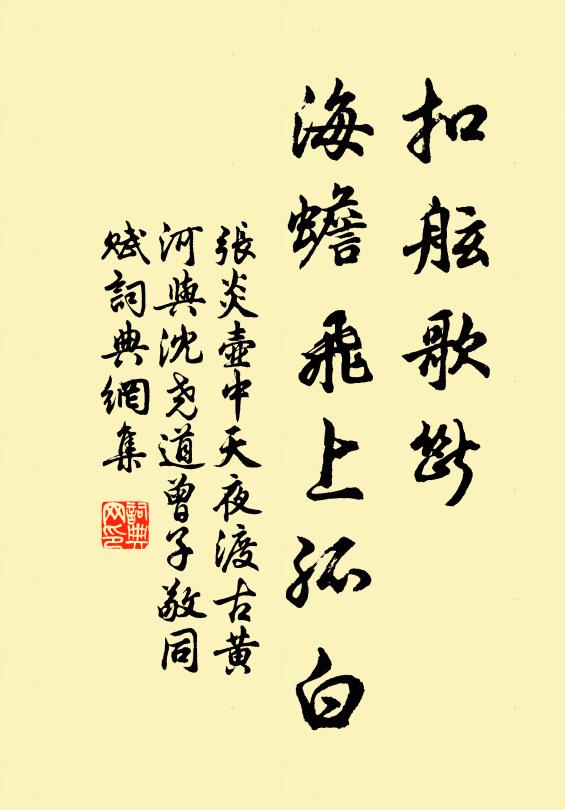 扣舷歌斷
海蟾飛上孤白
張炎壺中天夜渡古黃
河與沈堯道曾子敬同
賦詞典網集
詞典
网印